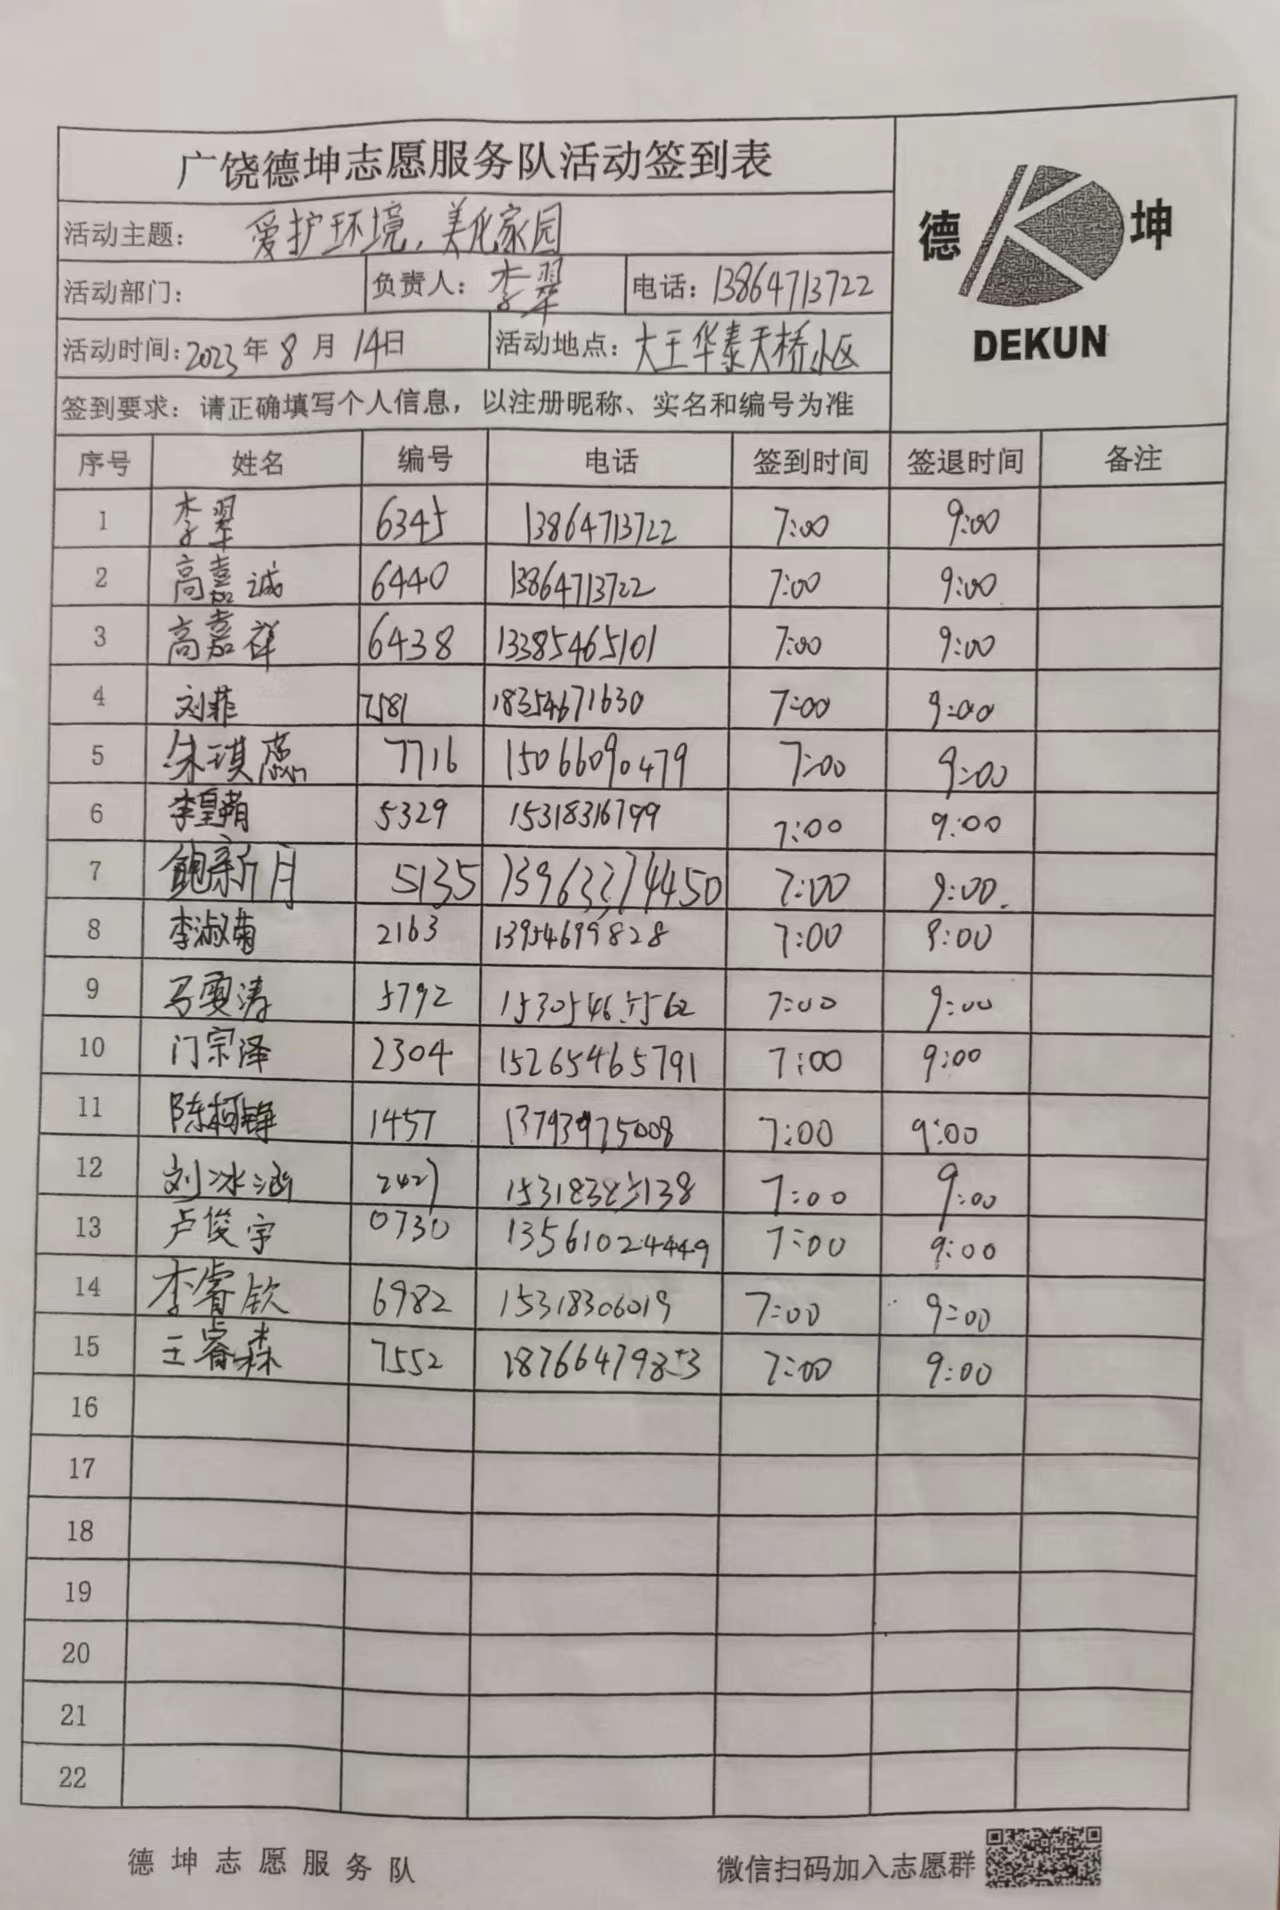 广饶德坤志愿服务队活动签到表
德 坤
DEKUN
活动主题: 爱护环境,美化家园
活动部门: 负责人: 李翠 电话: 13864713722
活动时间: 2023年8月14日 活动地点: 大王华泰天桥小区
签到要求: 请正确填写个人信息, 以注册昵称、实名和编号为准
序号 姓名 编号 电话 签到时间 签退时间 备注
1 李翠 6345 13864713722 7:00 9:00
2 高嘉诚 6440 13864713722 7:00 9:00
3 高嘉祥 6438 13385465101 7:00 9:00
4 刘菲 7581 18354671630 7:00 9:00
5 朱琪蕊 7716 15066090479 7:00 9:00
6 5329 15318316799 7:00 9:00
7 鲍新月 5135 13963374450 7:00 9:00.
8 李淑菊 2163 13954699828 7:00 9:00
9 5792 15305465562 7:00 9:00
10 门宗泽 2304 15265465791 7:00 9:00
11 陈柯铮 1457 13793975008 7:00 9:00
12 刘冰涵 2427 15318385138 7:00 9:00
13 卢俊宇 0730 13561024449 7:00 9:00
14 李睿钦 6982 15318306019 7:00 9:00
15 王睿森 7552 18766479853 7:00 9:00
16
17
18
19
20
21
22
德坤志愿服务队 微信扫码加入志愿群